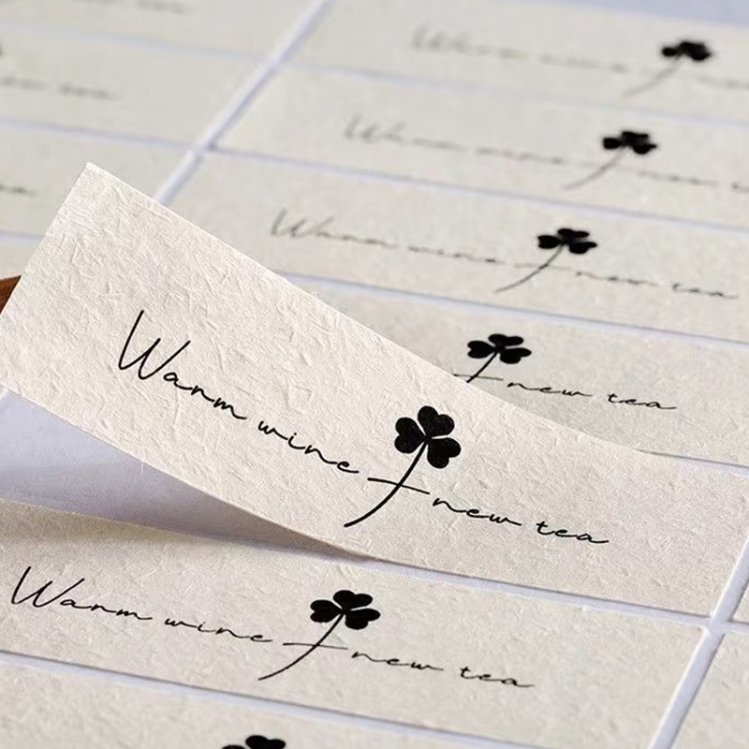 Warm wine
Warm wine new tea
Warm wine new tea
Warm wine new tea
new tea
Warm wine new tea
Warm wine new tea